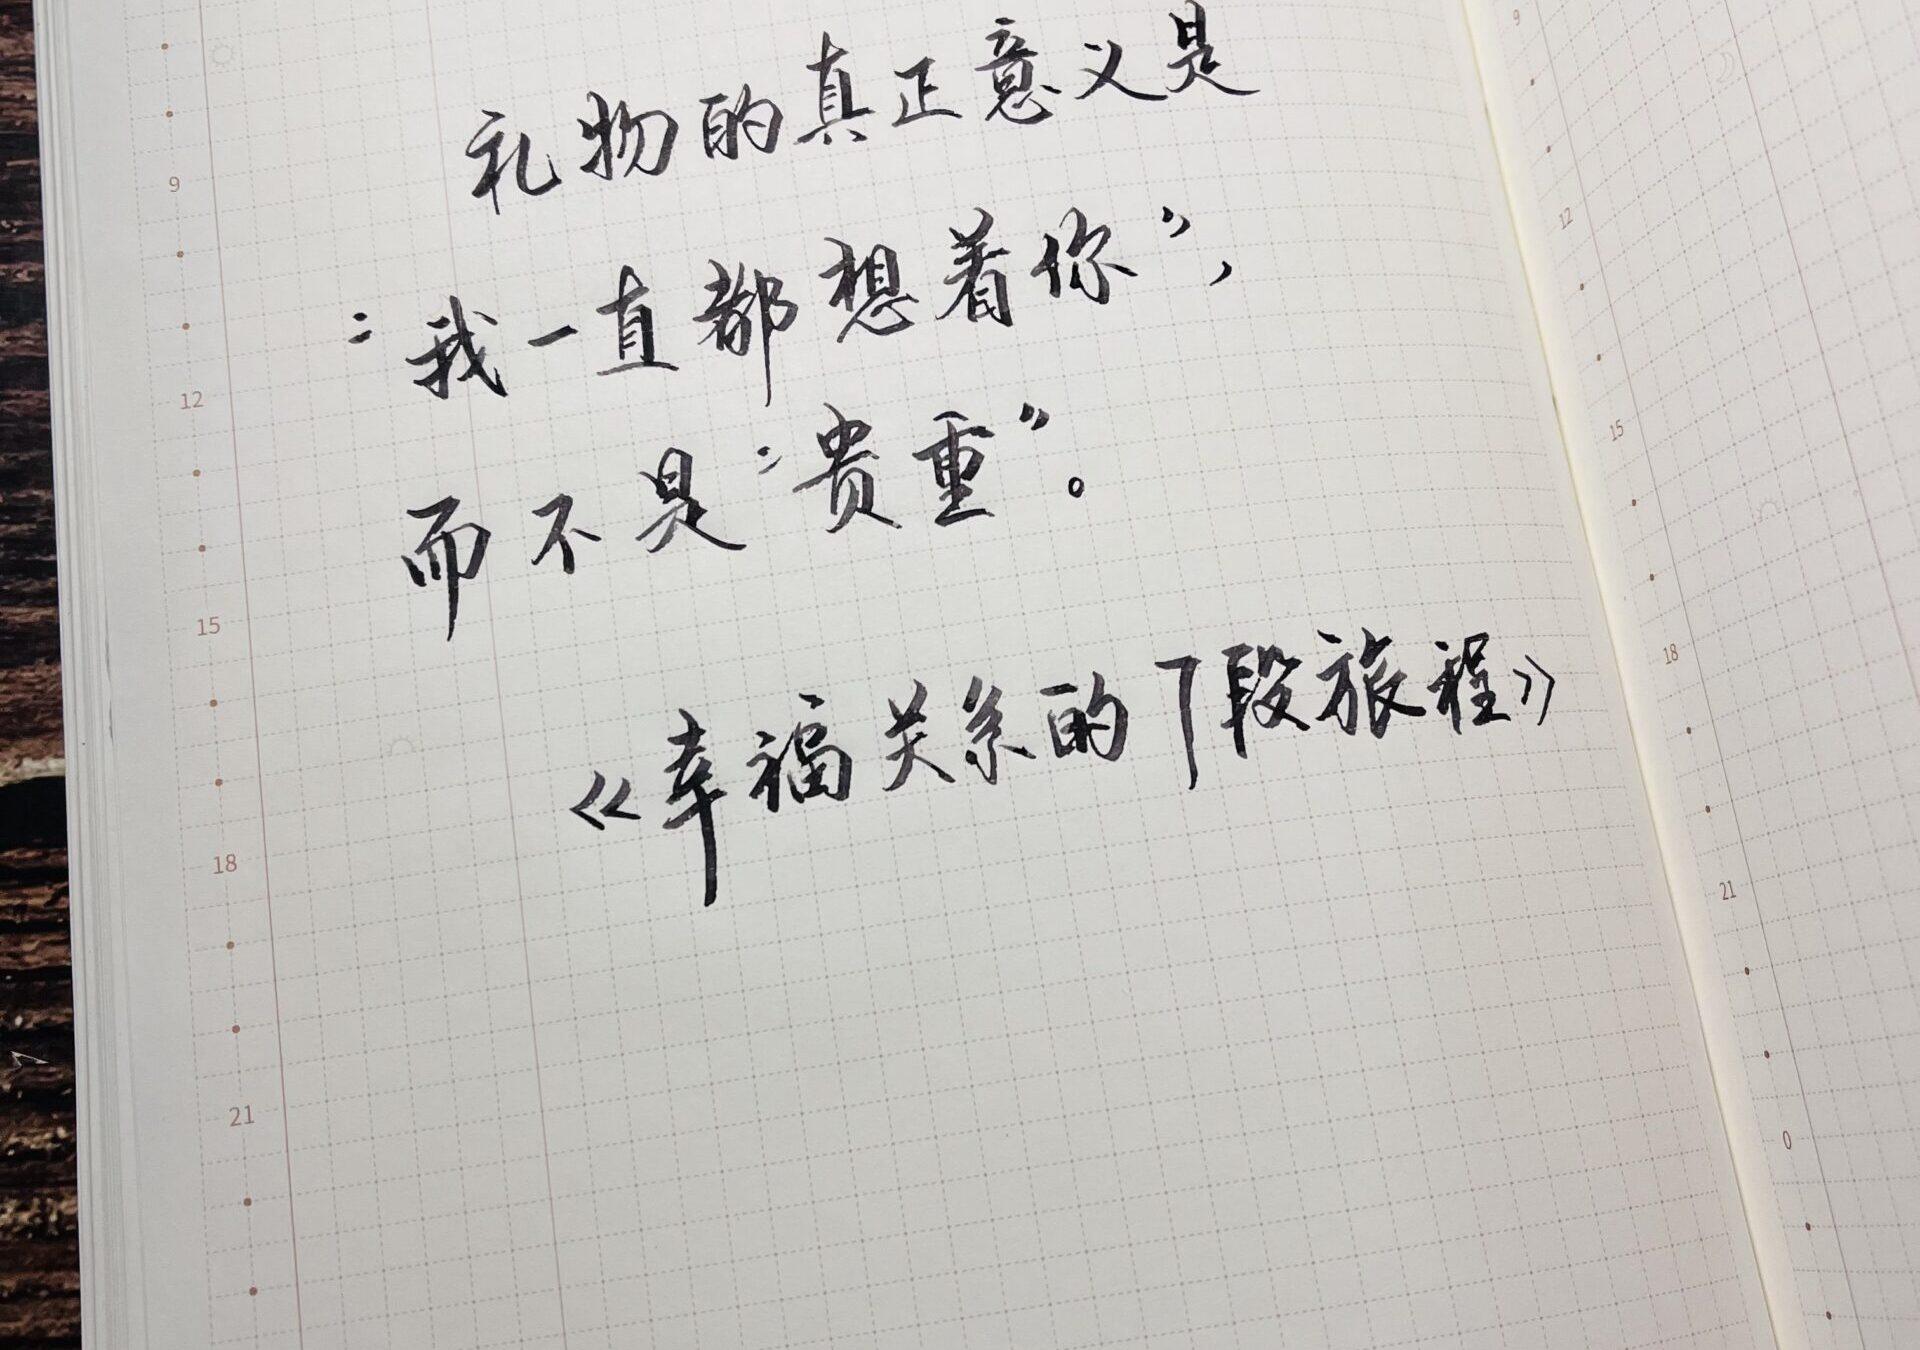 礼物的真正意义是
“我一直都想着你”，
而不是“贵重”。
《幸福关系的7段旅程》
9
12
15
18
21
9
12
15
18
21
0